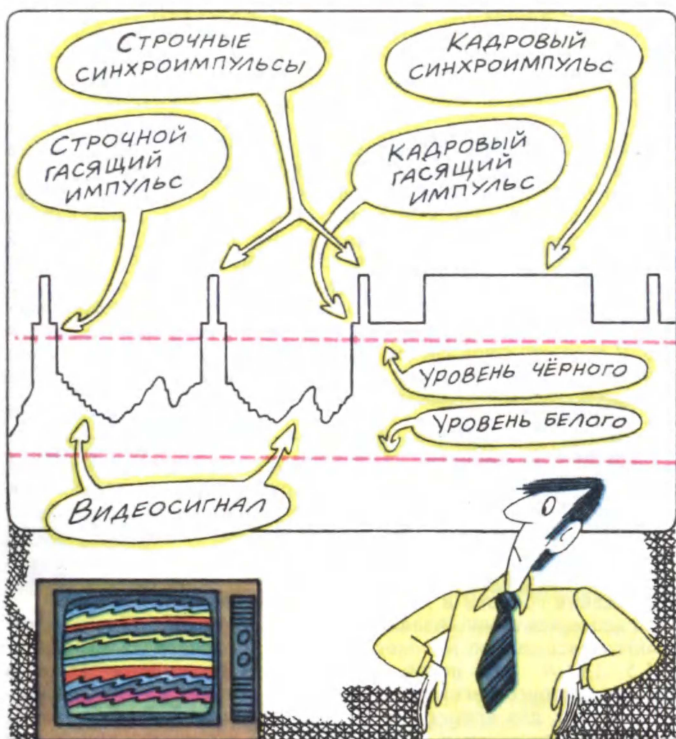 СТРОЧНЫЕ
СИНХРОИМПУЛЬСЫ
КАДРОВЫЙ
СИНХРОИМПУЛЬС
СТРОЧНОЙ
ГАСЯЩИЙ
ИМПУЛЬС
КАДРОВЫЙ
ГАСЯЩИЙ
ИМПУЛЬС
УРОВЕНЬ ЧЁРНОГО
УРОВЕНЬ БЕЛОГО
ВИДЕОСИГНАЛ